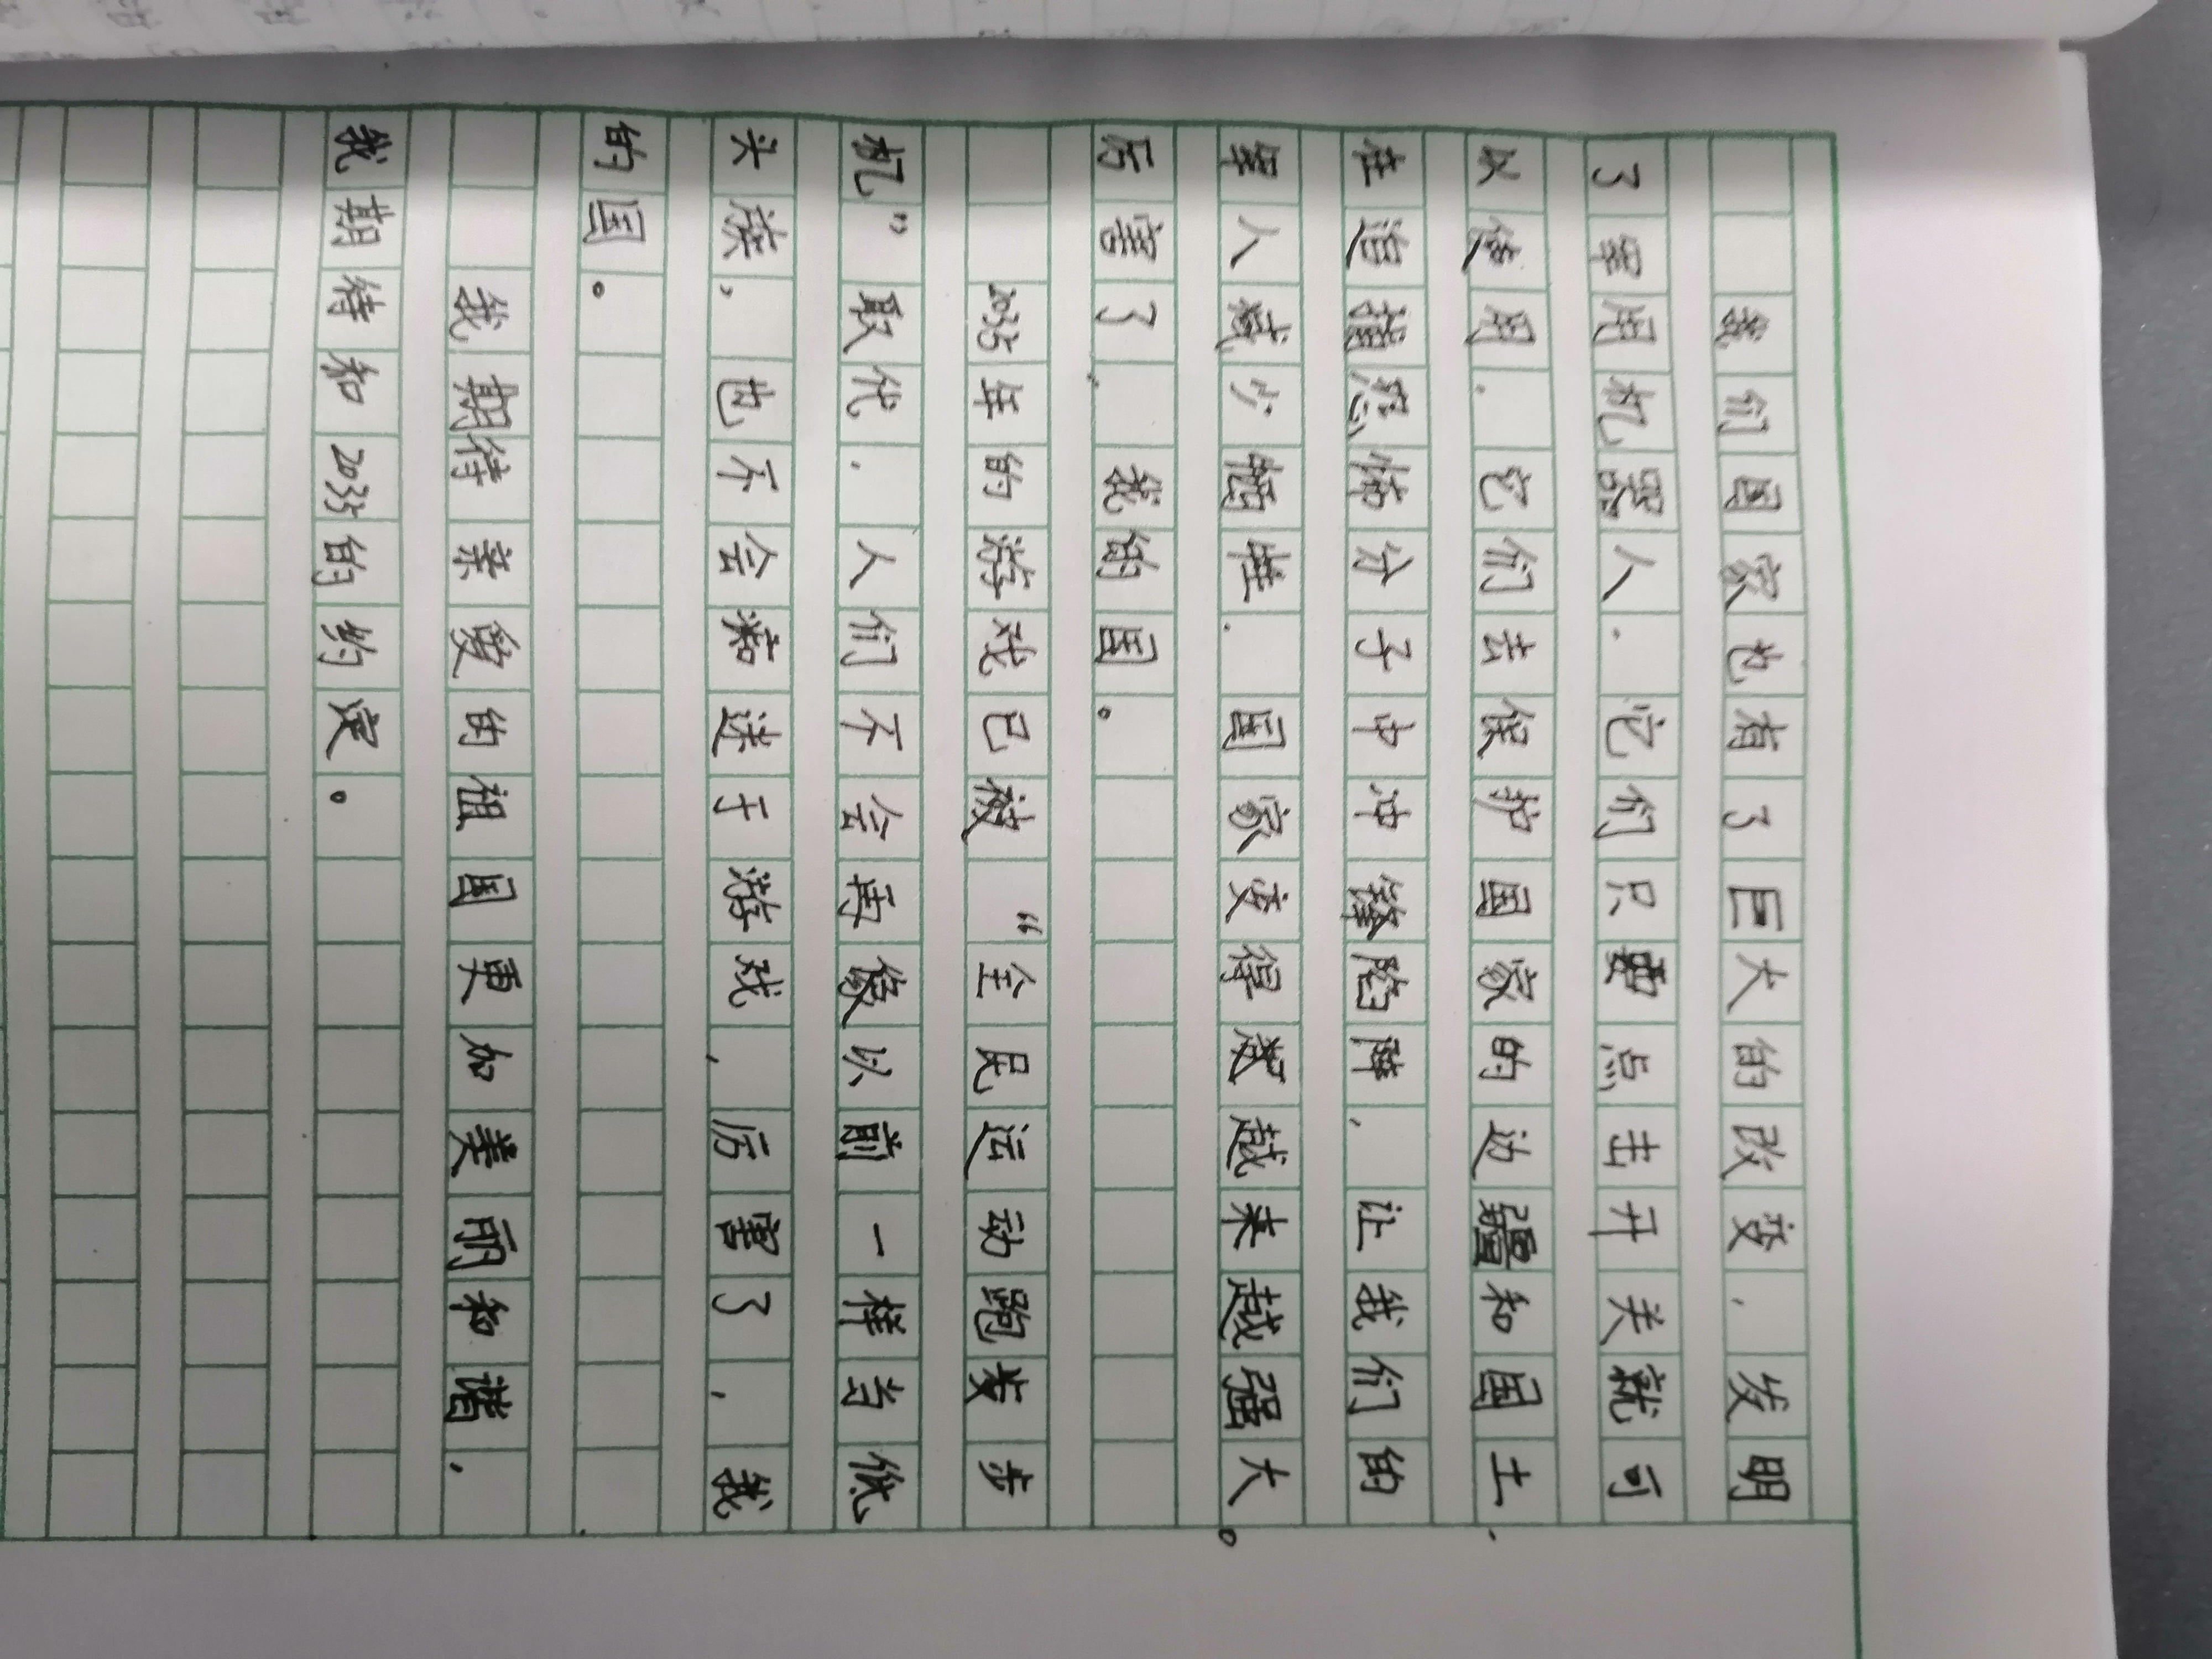 我们国家也有了巨大的改变，发明
了军用机器人，它们只要点击开关就可
以使用，它们去保护国家的边疆和国土，
在追捕恐怖分子中冲锋陷阵，让我们的
军人减少牺牲，国家变得越越来越强大。
厉害了，我的国。
2035年的游戏已被“全民运动跑发步
机”取代，人们不会再像以前一样当低
头族，也不会痴迷于游戏，厉害了，我
的国。
我期待亲爱的祖国更加美丽和谐，
我期待和2035的约定。